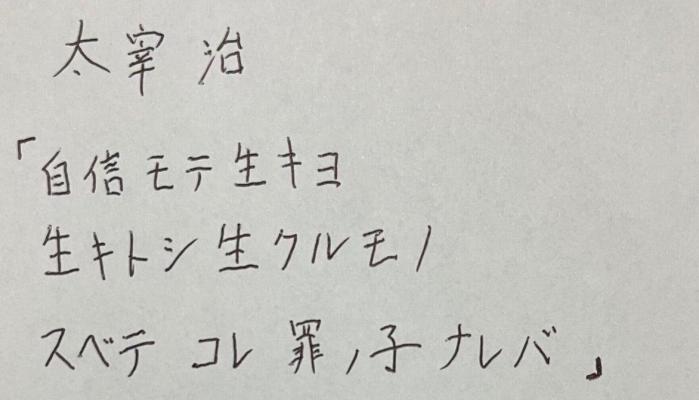 太宰 治
「自信モテ生キヨ
生キトシ生クルモノ
スベテ コレ 罪ノ子ナレバ」